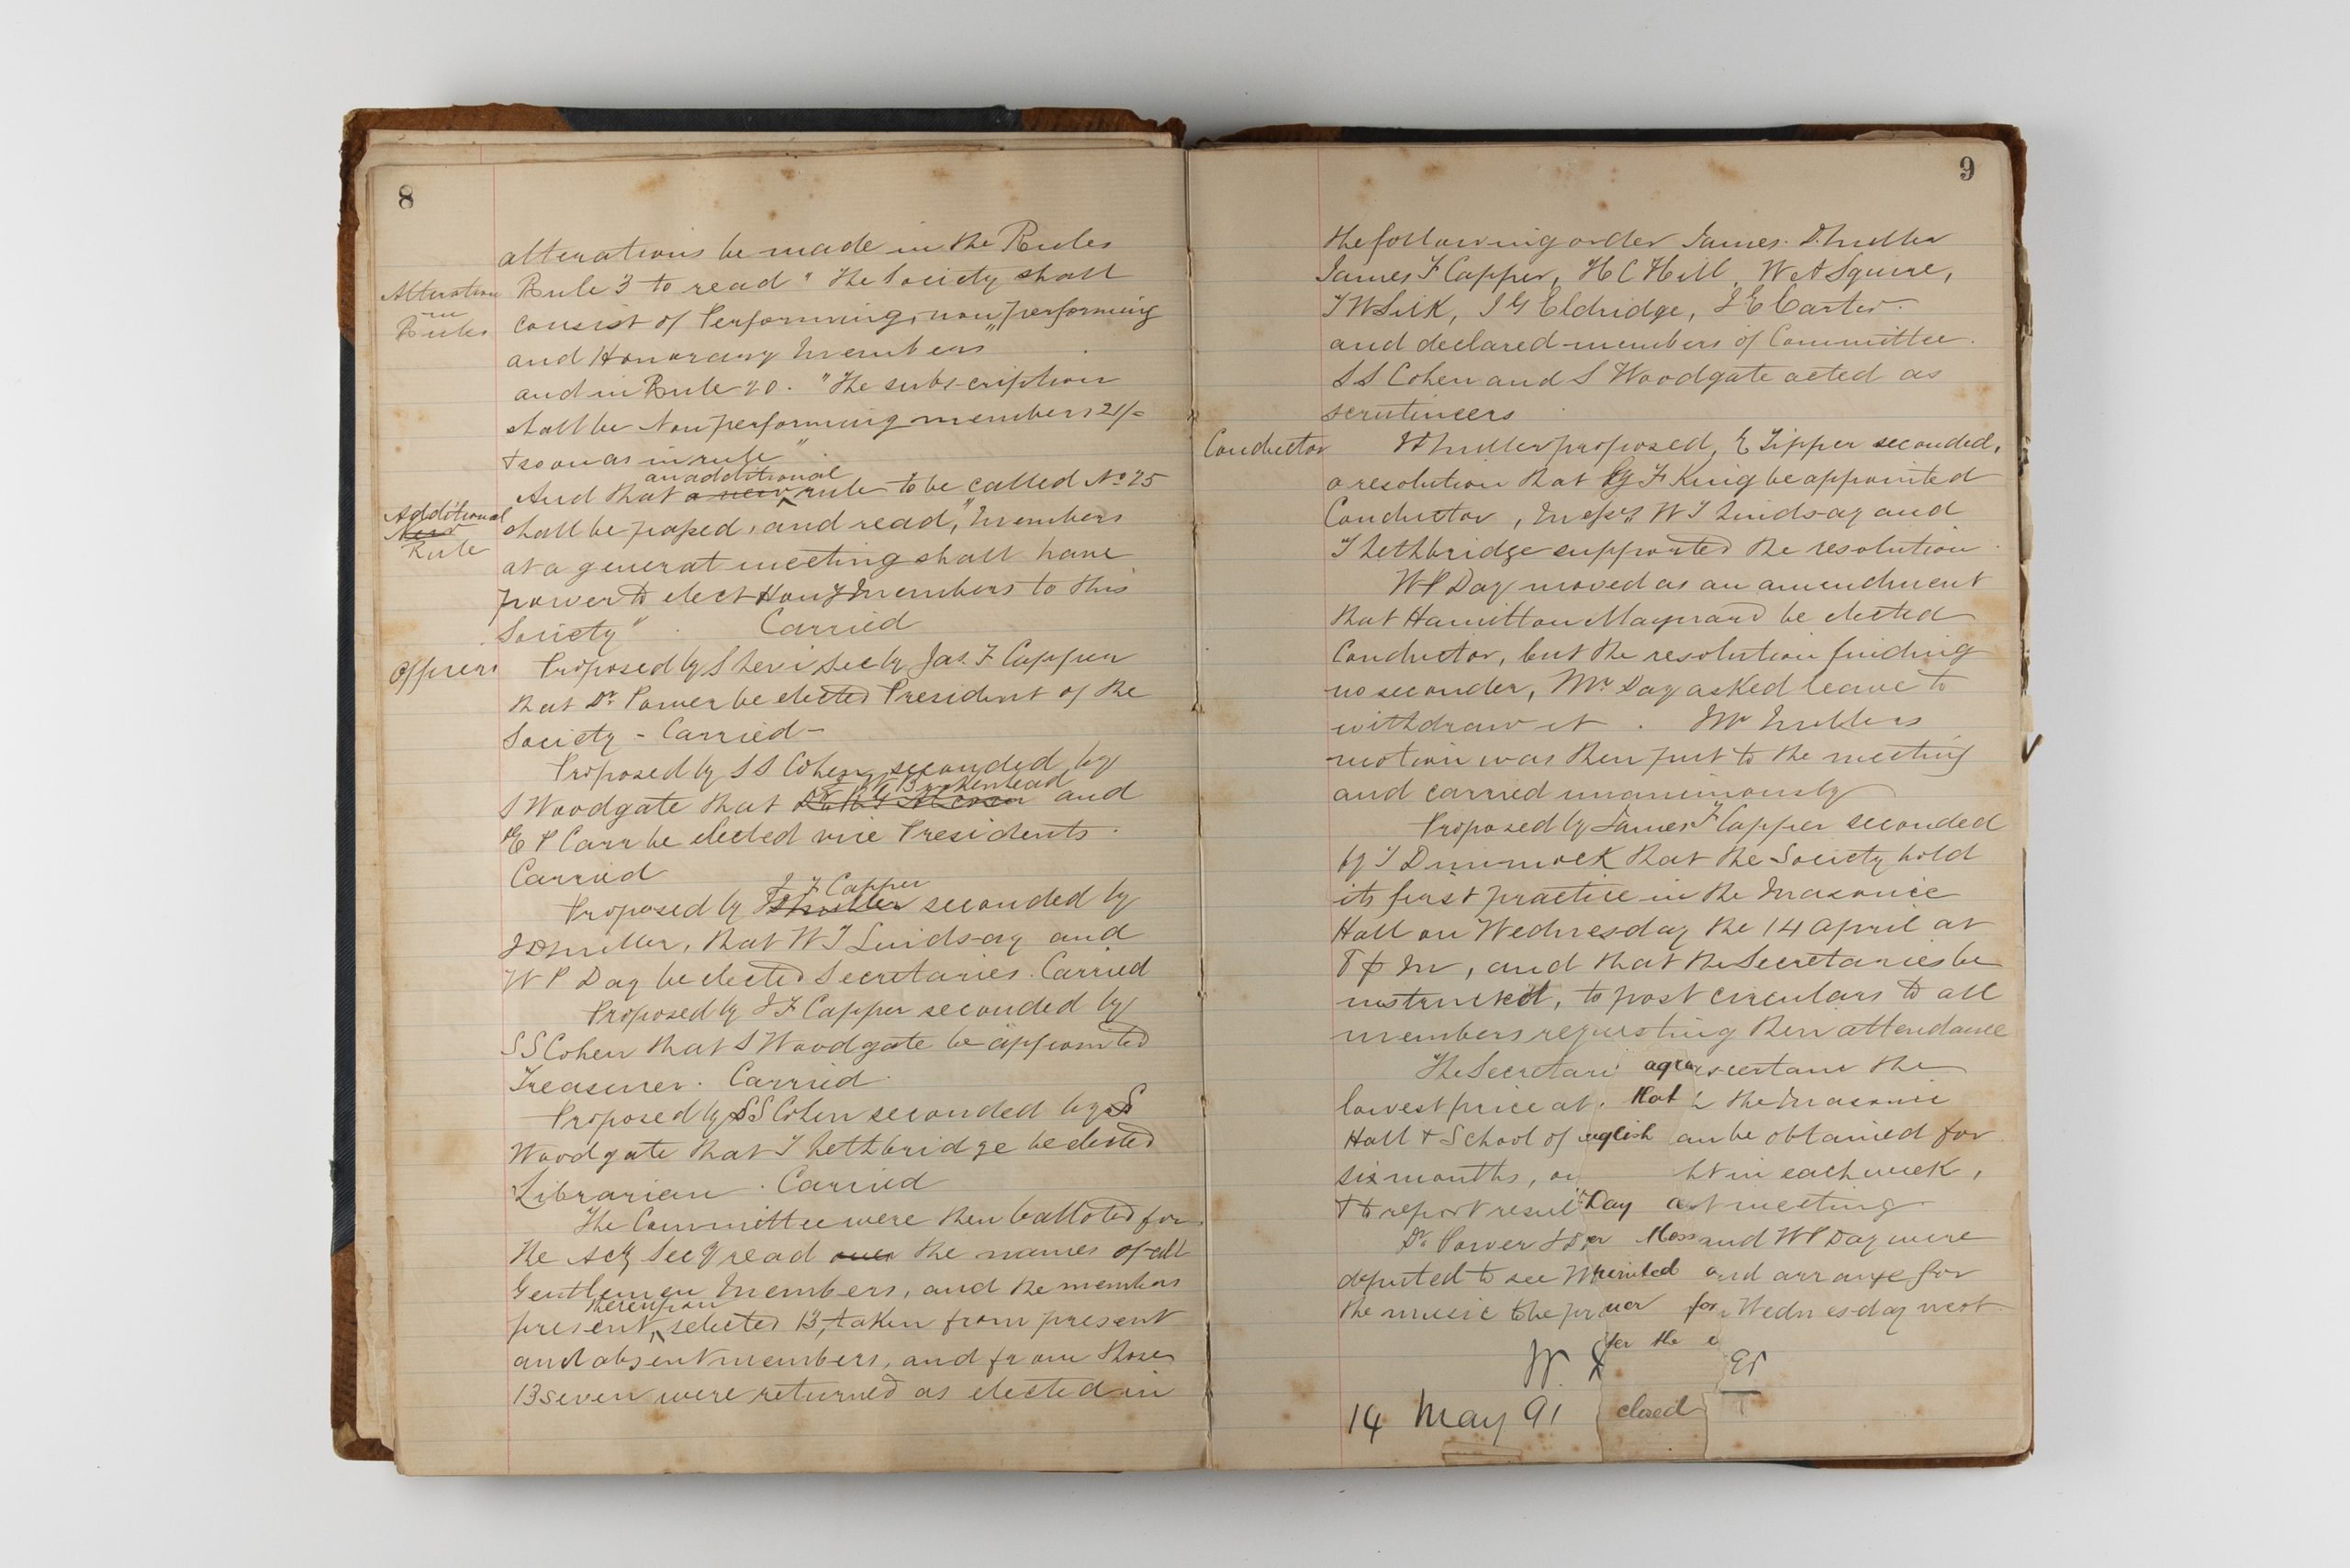 8
alterations be made in the Rules
Alteration in Rules
Rule 3 to read "The Society shall
consist of Performing, non performing
and Honorary Members"
and in Rule 20. "The subscription
shall be Non performing members 21/=
& so on as in rule"
an additional
And that a new rule to be called No 25
Additional New Rule
shall be passed, and read, "Members
at a general meeting shall have
power to elect Hony Members to this
Society" . Carried
Officers
Proposed by S Levi Sec by Jas. F Capper
that Dr Power be elected President of the
Society - Carried -
Proposed by S S Cohen, seconded by
W Birkenhead
S Woodgate that and
E P Carr be elected vice Presidents.
Carried
J F Capper
Proposed by J D Miller seconded by
J D Miller, that W J Lindsay and
W P Day be elected Secretaries. Carried
Proposed by J F Capper seconded by
S S Cohen that S Woodgate be appointed
Treasurer. Carried.
Proposed by S S Cohen seconded by S
Woodgate that J Lethbridge be elected
Librarian. Carried
The Committee were then balloted for.
The Actg Secy read over the names of all
Gentlemen Members, and the members
thereupon
present, selected 13, taken from present
and absent members, and from those
13 seven were returned as elected in
9
the following order James. D. Miller
James F Capper, H C Hill, W A Squire,
T W Silk, J G Eldridge, J E Carter.
and declared members of Committee.
S S Cohen and S Woodgate acted as
scrutineers
Conductor
Miller proposed, E Tipper seconded,
a resolution that G F King be appointed
Conductor, Messrs W J Lindsay and
J Lethbridge supported the resolution.
W P Day moved as an amendment
that Hamilton Maynard be elected
Conductor, but the resolution finding
no seconder, Mr Day asked leave to
withdraw it. Mr Millers
motion was then put to the meeting
and carried unanimously
Proposed by James F Capper seconded
by J Dimmock that the Society hold
its first practice in the Masonic
Hall on Wednesday the 14 April at
8 p m, and that the Secretaries be
instructed, to post circulars to all
members requesting their attendance
The Secretari agr ascertain the
lowest price at. that the Masonic
Hall & School of nglish an be obtained for
six months, on ht in each week,
& to report result Day at meeting.
Dr Power Moss and W P Day were
deputed to see and arrange for
the music for Wednesday next
for the e
W.
14 May 91 closed